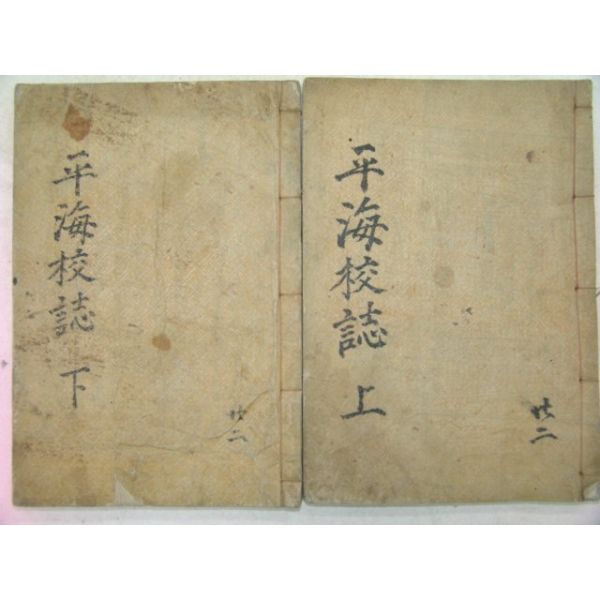 平海校誌 上
共二
平海校誌 下
共二